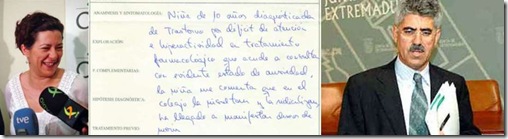 EXTREMADU
ANAMNESIS Y SINTOMATOLOGIA:
Niña de 10 años diagnosticada
de Trastorno por déficit de atención
EXPLORACIÓN:
e hiperactividad en tratamiento
farmacológico que acude a consulta
P. COMPLEMENTARIAS:
con evidente estado de ansiedad,
la niña me comenta que en el
HIPÓTESIS DIAGNÓSTICA:
colegio la
y
ha llegado a manifestar deseo de
TRATAMIENTO PREVIO:
morir
tve